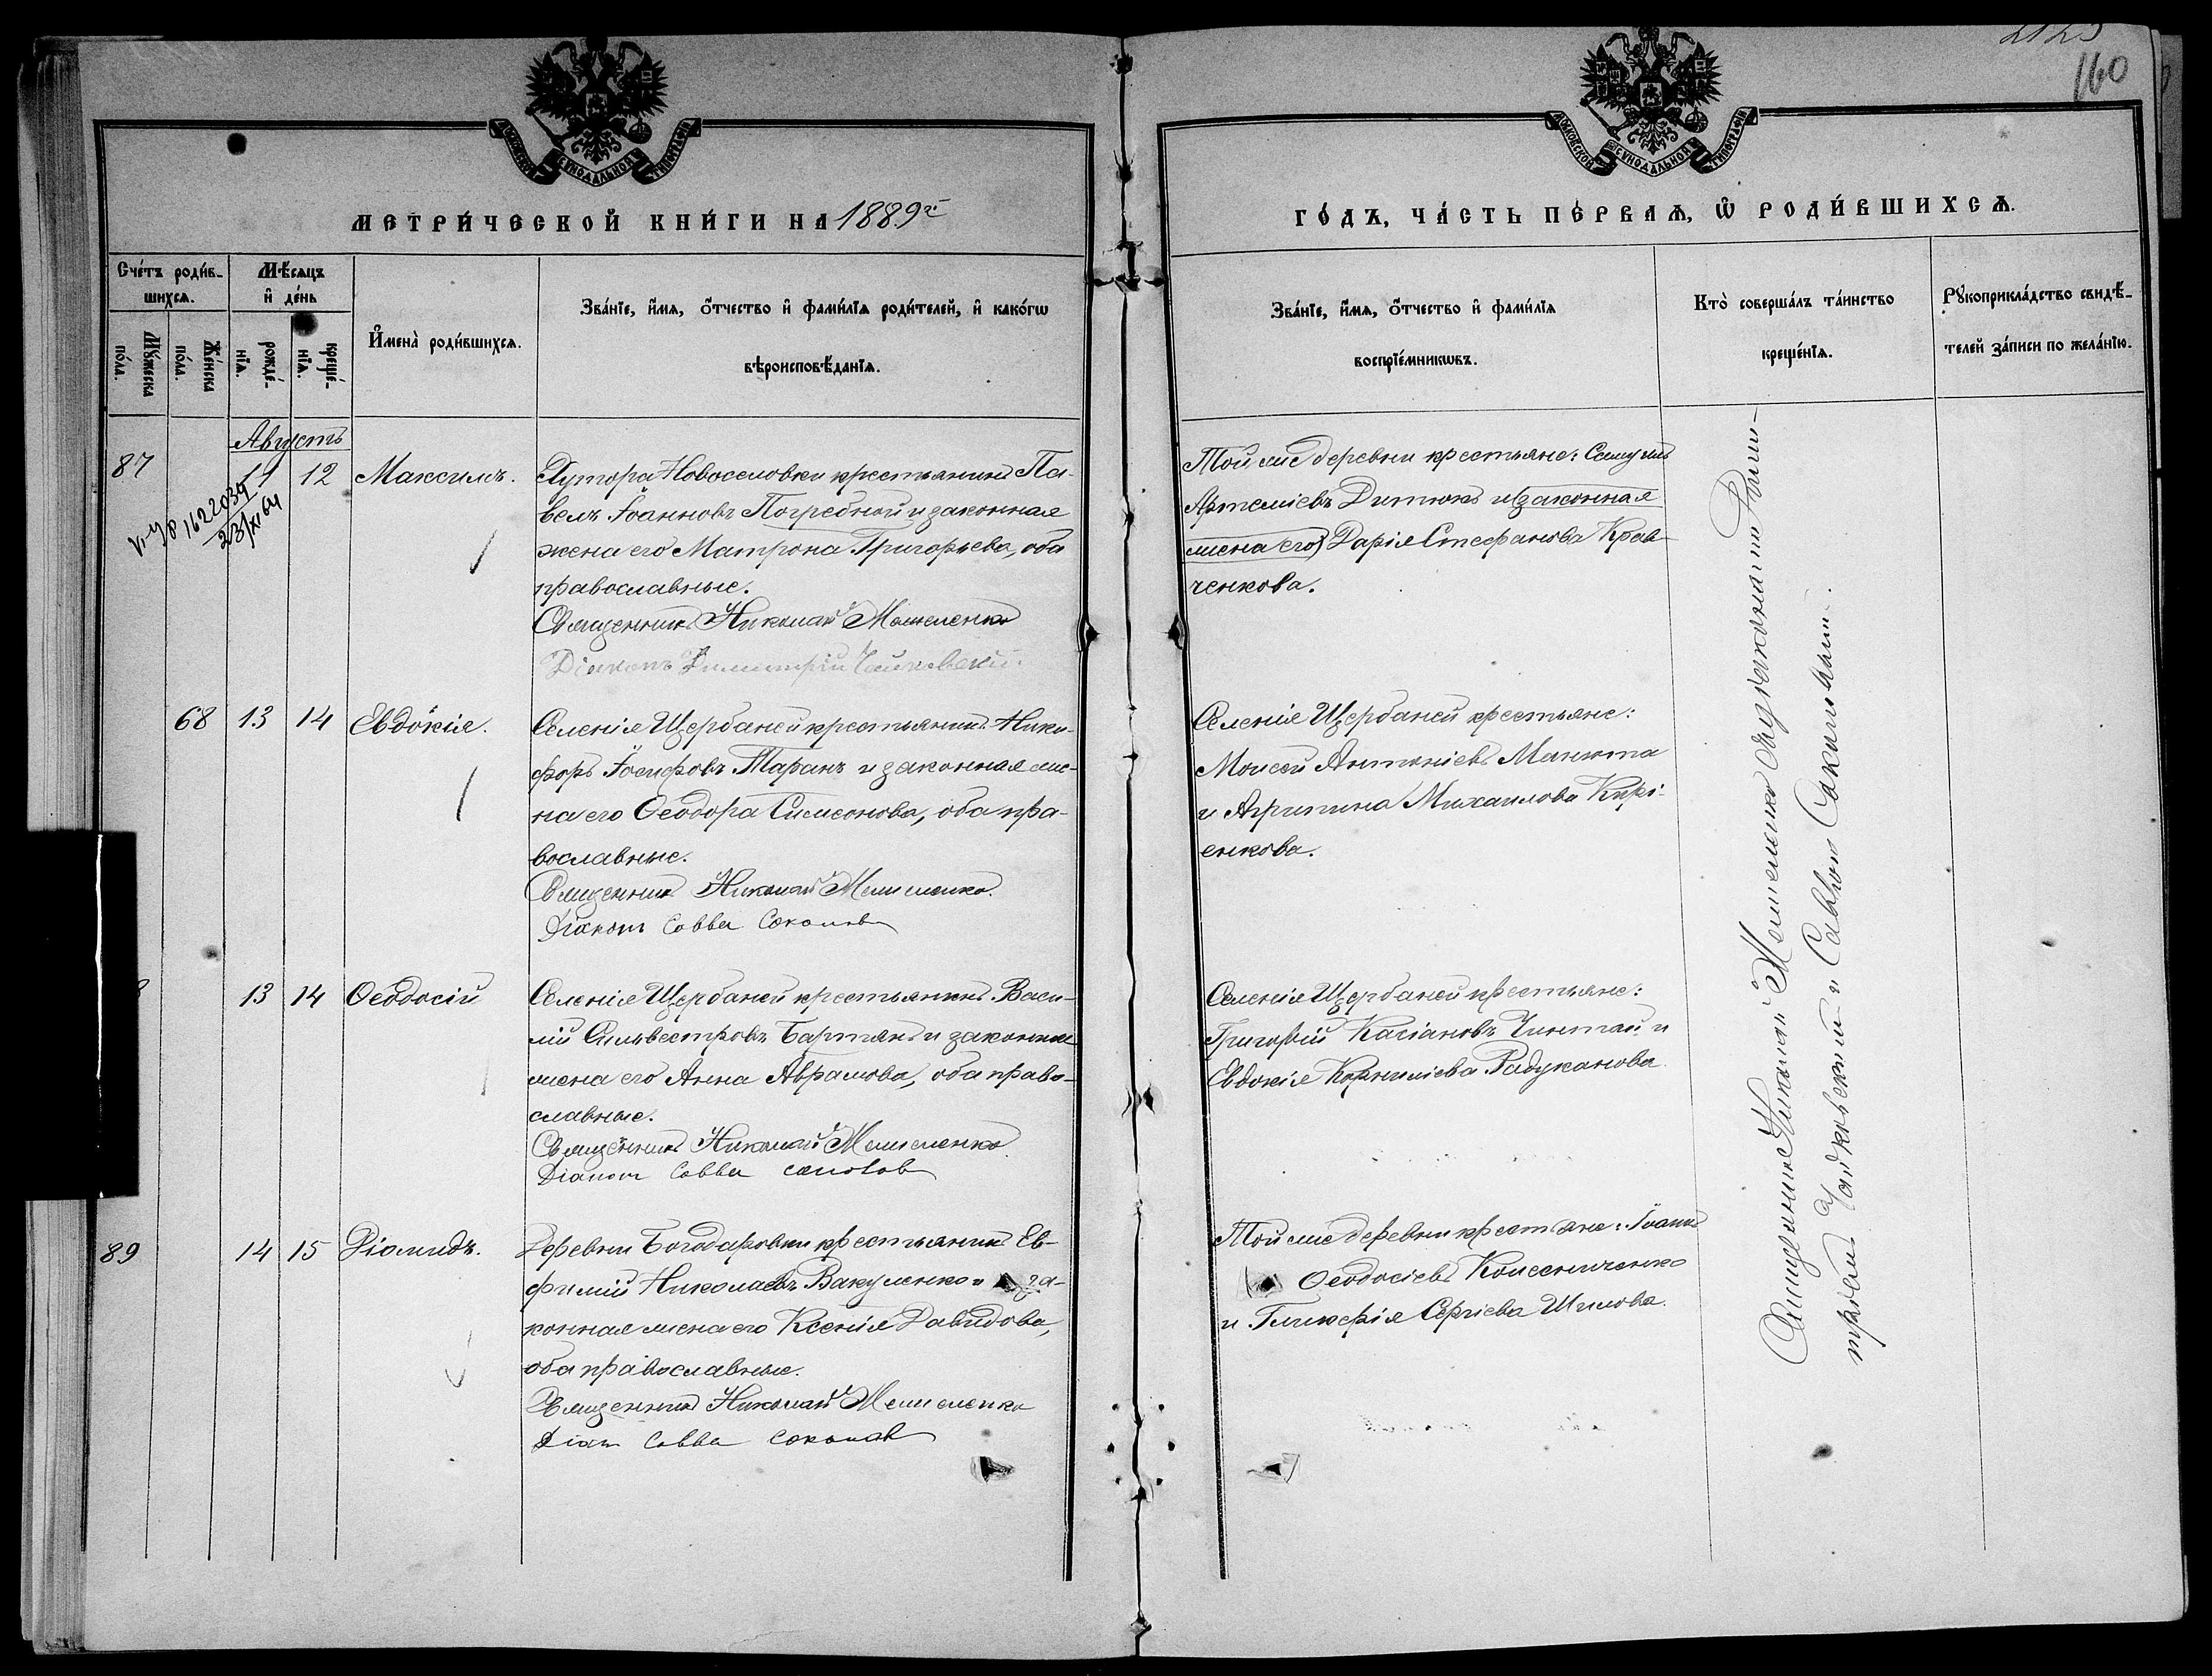 2123
160
МОСКОВСКОЙ СѴНОДАЛЬНОЙ ТИПОГРАФІИ
МОСКОВСКОЙ СѴНОДАЛЬНОЙ ТИПОГРАФІИ
МЕТРИ́ЧЕСКОЙ КНИ́ГИ НА 1889й
ГО́ДЪ, ЧА́СТЬ ПЕ́РВАѦ, Ѡ҆ РОДИ́ВШИХСѦ.
Сче́тъ роди́в-
шихсѧ.
Мꙋ́жеска по́ла.
Же́нска по́ла.
Мѣ́сѧцъ
и҆ де́нь
рожде́-
нїѧ.
креще́-
нїѧ.
И҆мена̀ роди́вшихсѧ.
Зва́нїе, и҆́мѧ, ѻ҆́тчество и҆ фами́лїѧ роди́телей, и҆ како́гѡ
вѣроисповѣ́данїѧ.
Зва́нїе, и҆́мѧ, ѻ҆́тчество и҆ фами́лїѧ
воспрїе́мникѡвъ.
Кто̀ соверша́лъ та́инство
креще́нїѧ.
Рꙋкоприкла́дство свидѣ́-
телей за́писи по жела́нїю.
Августъ
87 11 12 Максимъ.
1622039
23/XI 64
Хутора Новоселовки крестьянинъ Па-
велъ Іоанновъ Погребной и законная
жена его Матрона Григорьева, оба
православные.
Священникъ Николай Мешеменко
Діаконъ Димитрій Чайковскій.
Той же деревни крестьяне: Самуилъ
Артеміевъ Дитюкъ и (законная
жена его) Дарія Стефанова Крав-
ченкова.
68 13 14 Евдокія.
Селенія Щербаней крестьянинъ Ники-
форъ Іосифовъ Таранъ и законная же-
на его Ѳеодора Симеонова, оба пра-
вославные.
Священникъ Николай Мешеменко.
Діаконъ Савва Соколовъ
Селенія Щербаней крестьяне:
Моисей Антоніевъ Манюта
и Агрипина Михаилова Кирі-
енкова.
13 14 Ѳеодосій
Селенія Щербаней крестьянинъ Васи-
лій Сильвестровъ Бартянъ и законная
жена его Анна Аврамова, оба право-
славные.
Священникъ Николай Мешеменко.
Діаконъ Савва Соколовъ
Селенія Щербаней крестьяне:
Григорій Касіановъ Чинтай и
Евдокія Корниліева Радуканова
89 14 15 Діомидъ.
Деревни Богодаровки крестьянинъ Ев-
фимій Николаевъ Вакуленко и за-
конная жена его Ксенія Давидова,
оба православные.
Священникъ Николай Мешеменко
Діак Савва Соколовъ
Той же деревни крестьяне: Іоаннъ
Ѳеодосіевъ Колесниченко
и Гликерія Сергіева Шилова.
Священникъ Николай Мешеменко съ діаконами Дими-
тріемъ Чайковскимъ и Саввою Соколовымъ.